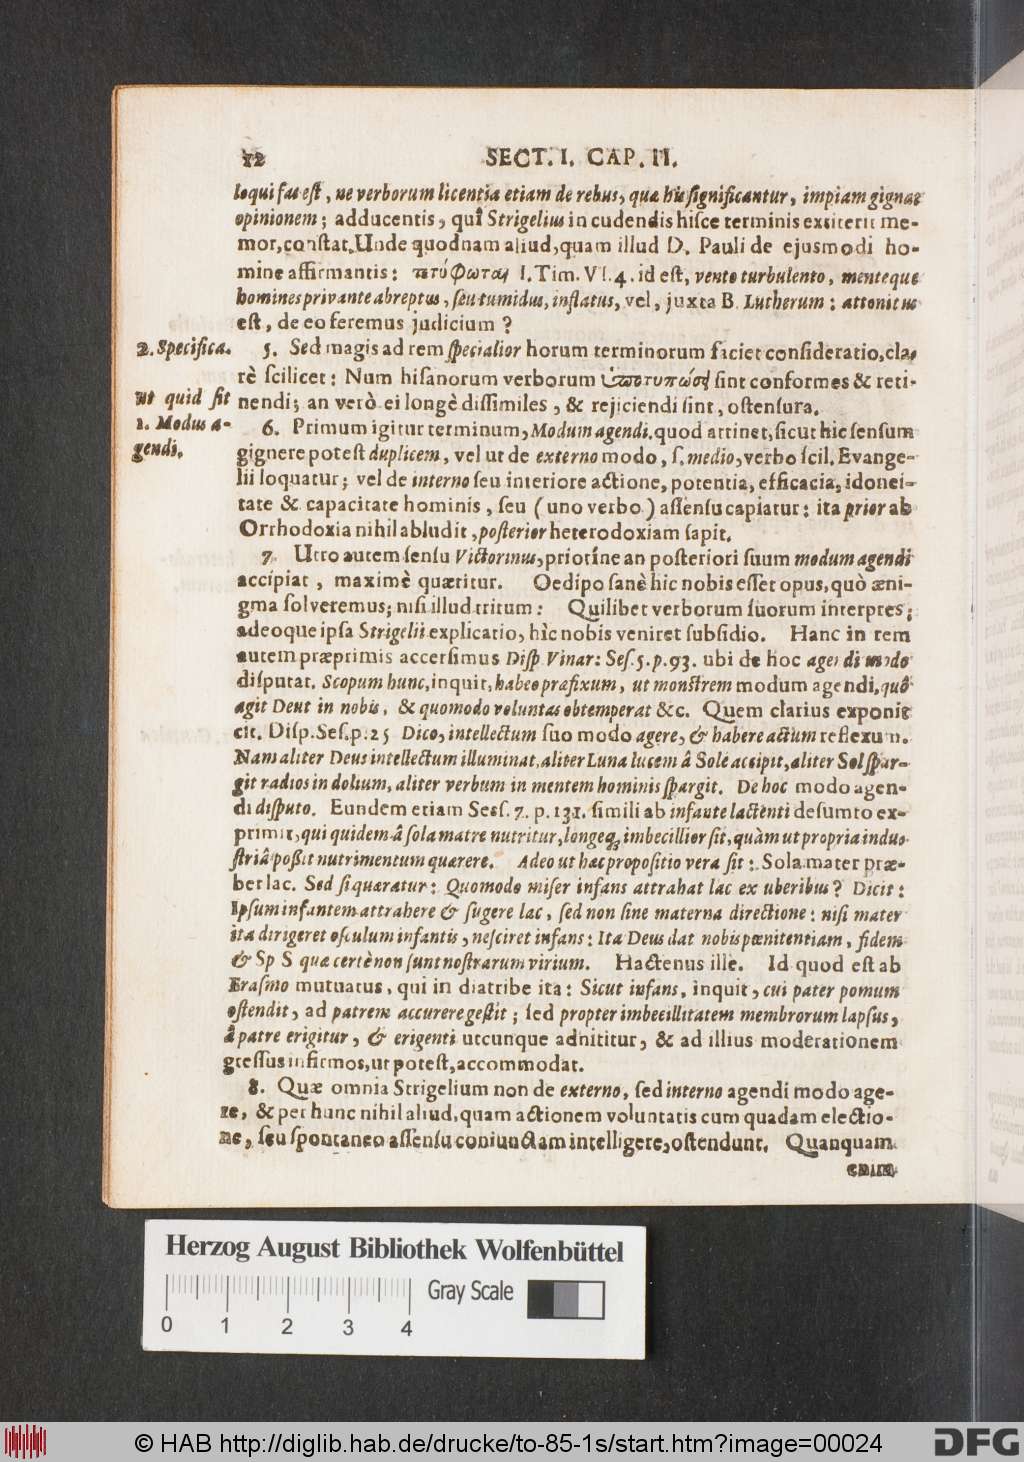 12 SECT. I. CAP. II.
loqui fas est, ne verborum licentia etiam de rebus, quæ his significantur, impiam gignat
opinionem; adducentis, quî Strigelius in cudendis hisce terminis exstiterit me-
mor, constat. Unde quodnam aliud, quam illud D. Pauli de ejusmodi ho-
mine affirmantis: τετύφωται I. Tim. VI. 4. id est, vento turbulento, menteque
homines privante abreptus, seu tumidus, inflatus, vel, juxta B. Lutherum: attonitus
est, de eo feremus judicium?
2. Specifica.
5. Sed magis ad rem specialior horum terminorum faciet consideratio, cla-
rè scilicet: Num hi sanorum verborum ὑποτυπώσει sint conformes & reti-
ut quid sit
nendi; an verò ei longè dissimiles, & rejiciendi sint, ostensura.
1. Modus a-
gendi.
6. Primum igitur terminum, Modum agendi. quod attinet, sicut hic sensum
gignere potest duplicem, vel ut de externo modo, s. medio, verbo scil. Evange-
lii loquatur; vel de interno seu interiore actione, potentia, efficacia, idonei-
tate & capacitate hominis, seu (uno verbo) assensu capiatur: ita prior ab
Orrhodoxia nihil abludit, posterior heterodoxiam sapit.
7. Utro autem sensu Victorinus, priorine an posteriori suum modum agendi
accipiat, maximè quæritur. Oedipo sanè hic nobis esset opus, quò æni-
gma solveremus; nisi illud tritum: Quilibet verborum suorum interpres;
adeoque ipsa Strigelii explicatio, hìc nobis veniret subsidio. Hanc in rem
autem præprimis accersimus Disp. Vinar: Ses. 5. p. 93. ubi de hoc agendi modo
disputat. Scopum hunc, inquit, habeo præfixum, ut monstrem modum agendi, quô
agit Deus in nobis, & quomodo voluntas obtemperat &c. Quem clarius exponit
cit. Disp. Ses. p. 25 Dico, intellectum suo modo agere, & habere actum reflexum.
Nam aliter Deus intellectum illuminat, aliter Luna lucem â Sole accipit, aliter Sol spar-
git radios in dolium, aliter verbum in mentem hominis spargit. De hoc modo agen-
di disputo. Eundem etiam Sess. 7. p. 131. simili ab infante lactenti desumto ex-
primit, qui quidem â sola matre nutritur, longeq; imbecillior sit, quàm ut propria indu-
striâ possit nutrimentum quærere. Adeo ut hæc propositio vera sit: Sola mater præ-
bet lac. Sed si quæratur: Quomodo miser infans attrahat lac ex uberibus? Dicit:
Ipsum infantem attrahere & sugere lac, sed non sine materna directione: nisi mater
ita dirigeret osculum infantis, nesciret infans: Ita Deus dat nobis pœnitentiam, fidem
& Sp S quæ certè non sunt nostrarum virium. Hactenus ille. Id quod est ab
Erasmo mutuatus, qui in diatribe ita: Sicut infans, inquit, cui pater pomum
ostendit, ad patrem accurere gestit; sed propter imbecillitatem membrorum lapsus,
â patre erigitur, & erigenti utcunque adnititur, & ad illius moderationem
gressus infirmos, ut potest, accommodat.
8. Quæ omnia Strigelium non de externo, sed interno agendi modo age-
re, & per hunc nihil aliud, quam actionem voluntatis cum quadam electio-
ne, seu spontaneo assensu coniunctam intelligere, ostendunt. Quanquam
Herzog August Bibliothek Wolfenbüttel
Gray Scale
0 1 2 3 4
© HAB http://diglib.hab.de/drucke/to-85-1s/start.htm?image=00024
DFG